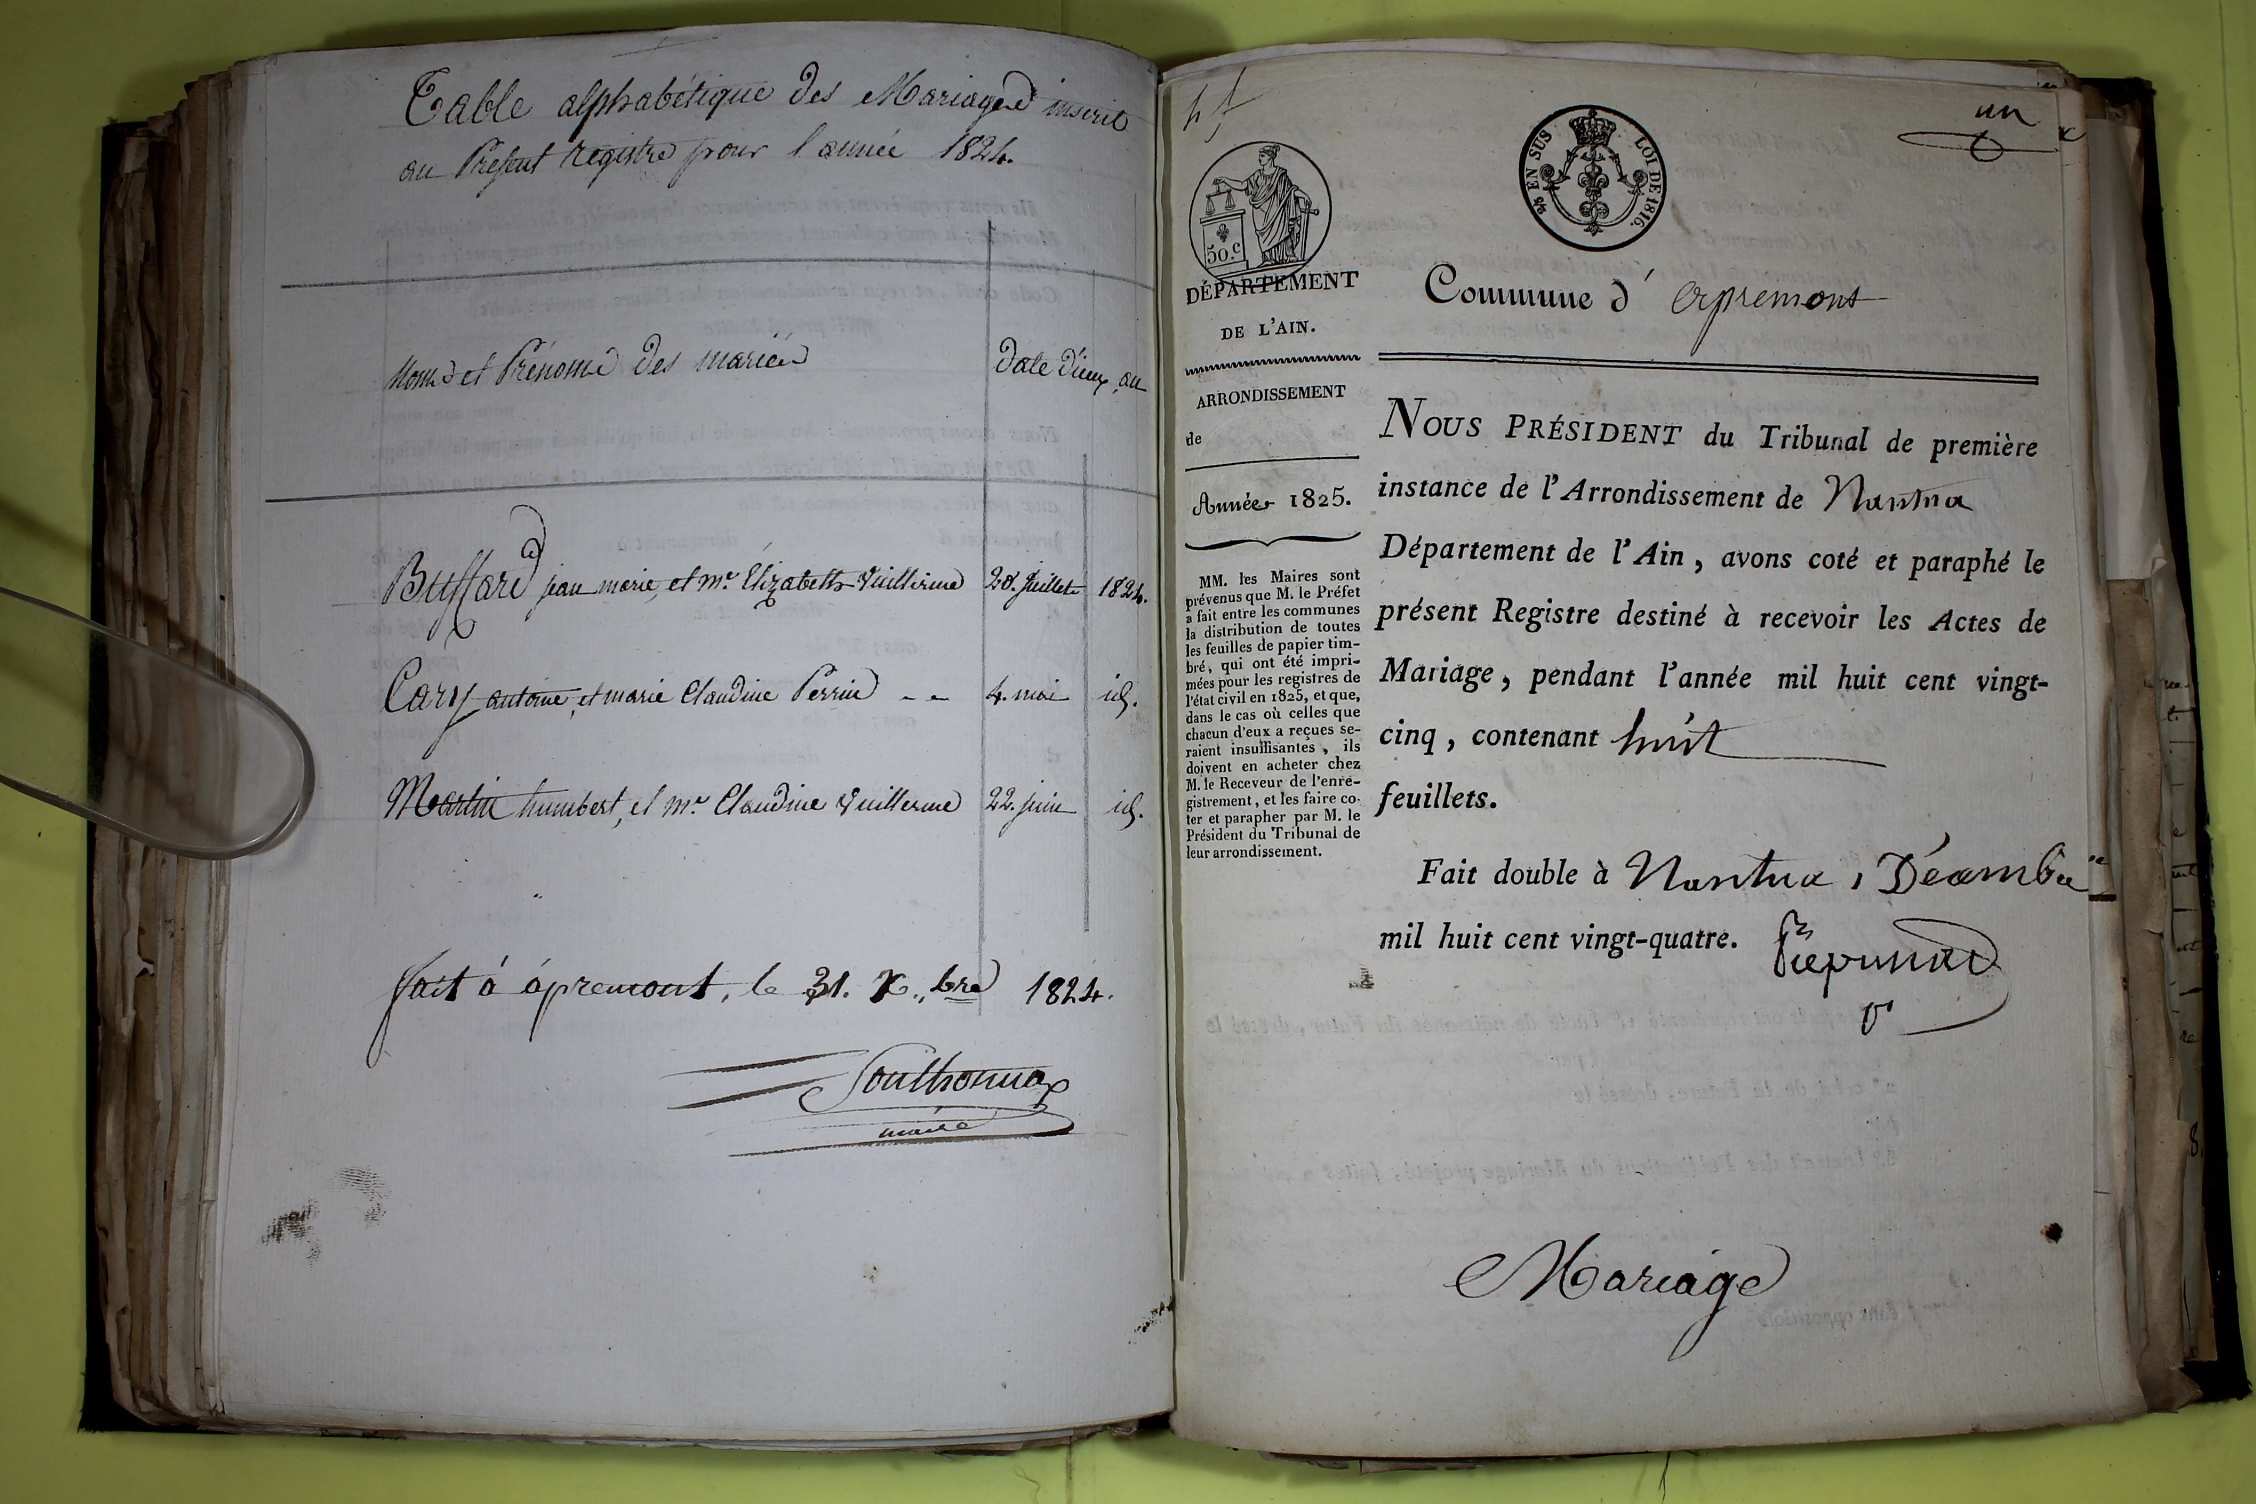 Table alphabétique des Mariages inscrits
au Présent registre pour l'année 1824.
Noms et Prénoms des mariés
date d'iceux, an
Buffard jean marie, et me. Elizabeth Vuillerme 28. juillet 1824.
Cary antoine, et marie Claudine Perrin - - 4. mai id.
Martin humbert, et me. Claudine Vuillerme 22. juin id.
fait à apremont, le 31. X.bre 1824.
Sonthonnax
maire
un
50.c
EN SUS LOI DE 1816.
DÉPARTEMENT
DE L'AIN.
ARRONDISSEMENT
de
Année 1825.
MM. les Maires sont
prévenus que M. le Préfet
a fait entre les communes
la distribution de toutes
les feuilles de papier tim-
bré, qui ont été impri-
mées pour les registres de
l'état civil en 1825, et que,
dans le cas où celles que
chacun d'eux a reçues se-
raient insuffisantes, ils
doivent en acheter chez
M. le Receveur de l'enre-
gistrement, et les faire co-
ter et parapher par M. le
Président du Tribunal de
leur arrondissement.
Commune d' apremont
NOUS PRÉSIDENT du Tribunal de première
instance de l'Arrondissement de Nantua
Département de l'Ain, avons coté et paraphé le
présent Registre destiné à recevoir les Actes de
Mariage, pendant l'année mil huit cent vingt-
cinq, contenant huit
feuillets.
Fait double à Nantua, Décembre
mil huit cent vingt-quatre.
Mariage